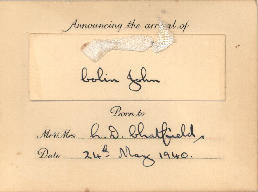 Announcing the arrival of
Colin John
Born to
Mr & Mrs L. D. Chatfield,
Date 24th May 1940.